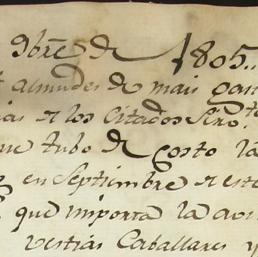 9bre de 1805..
almudes de maiz gan
de los Citados Sen.
que tubo de costo la
en Septiembre de est
que importa la
vestias Caballares y